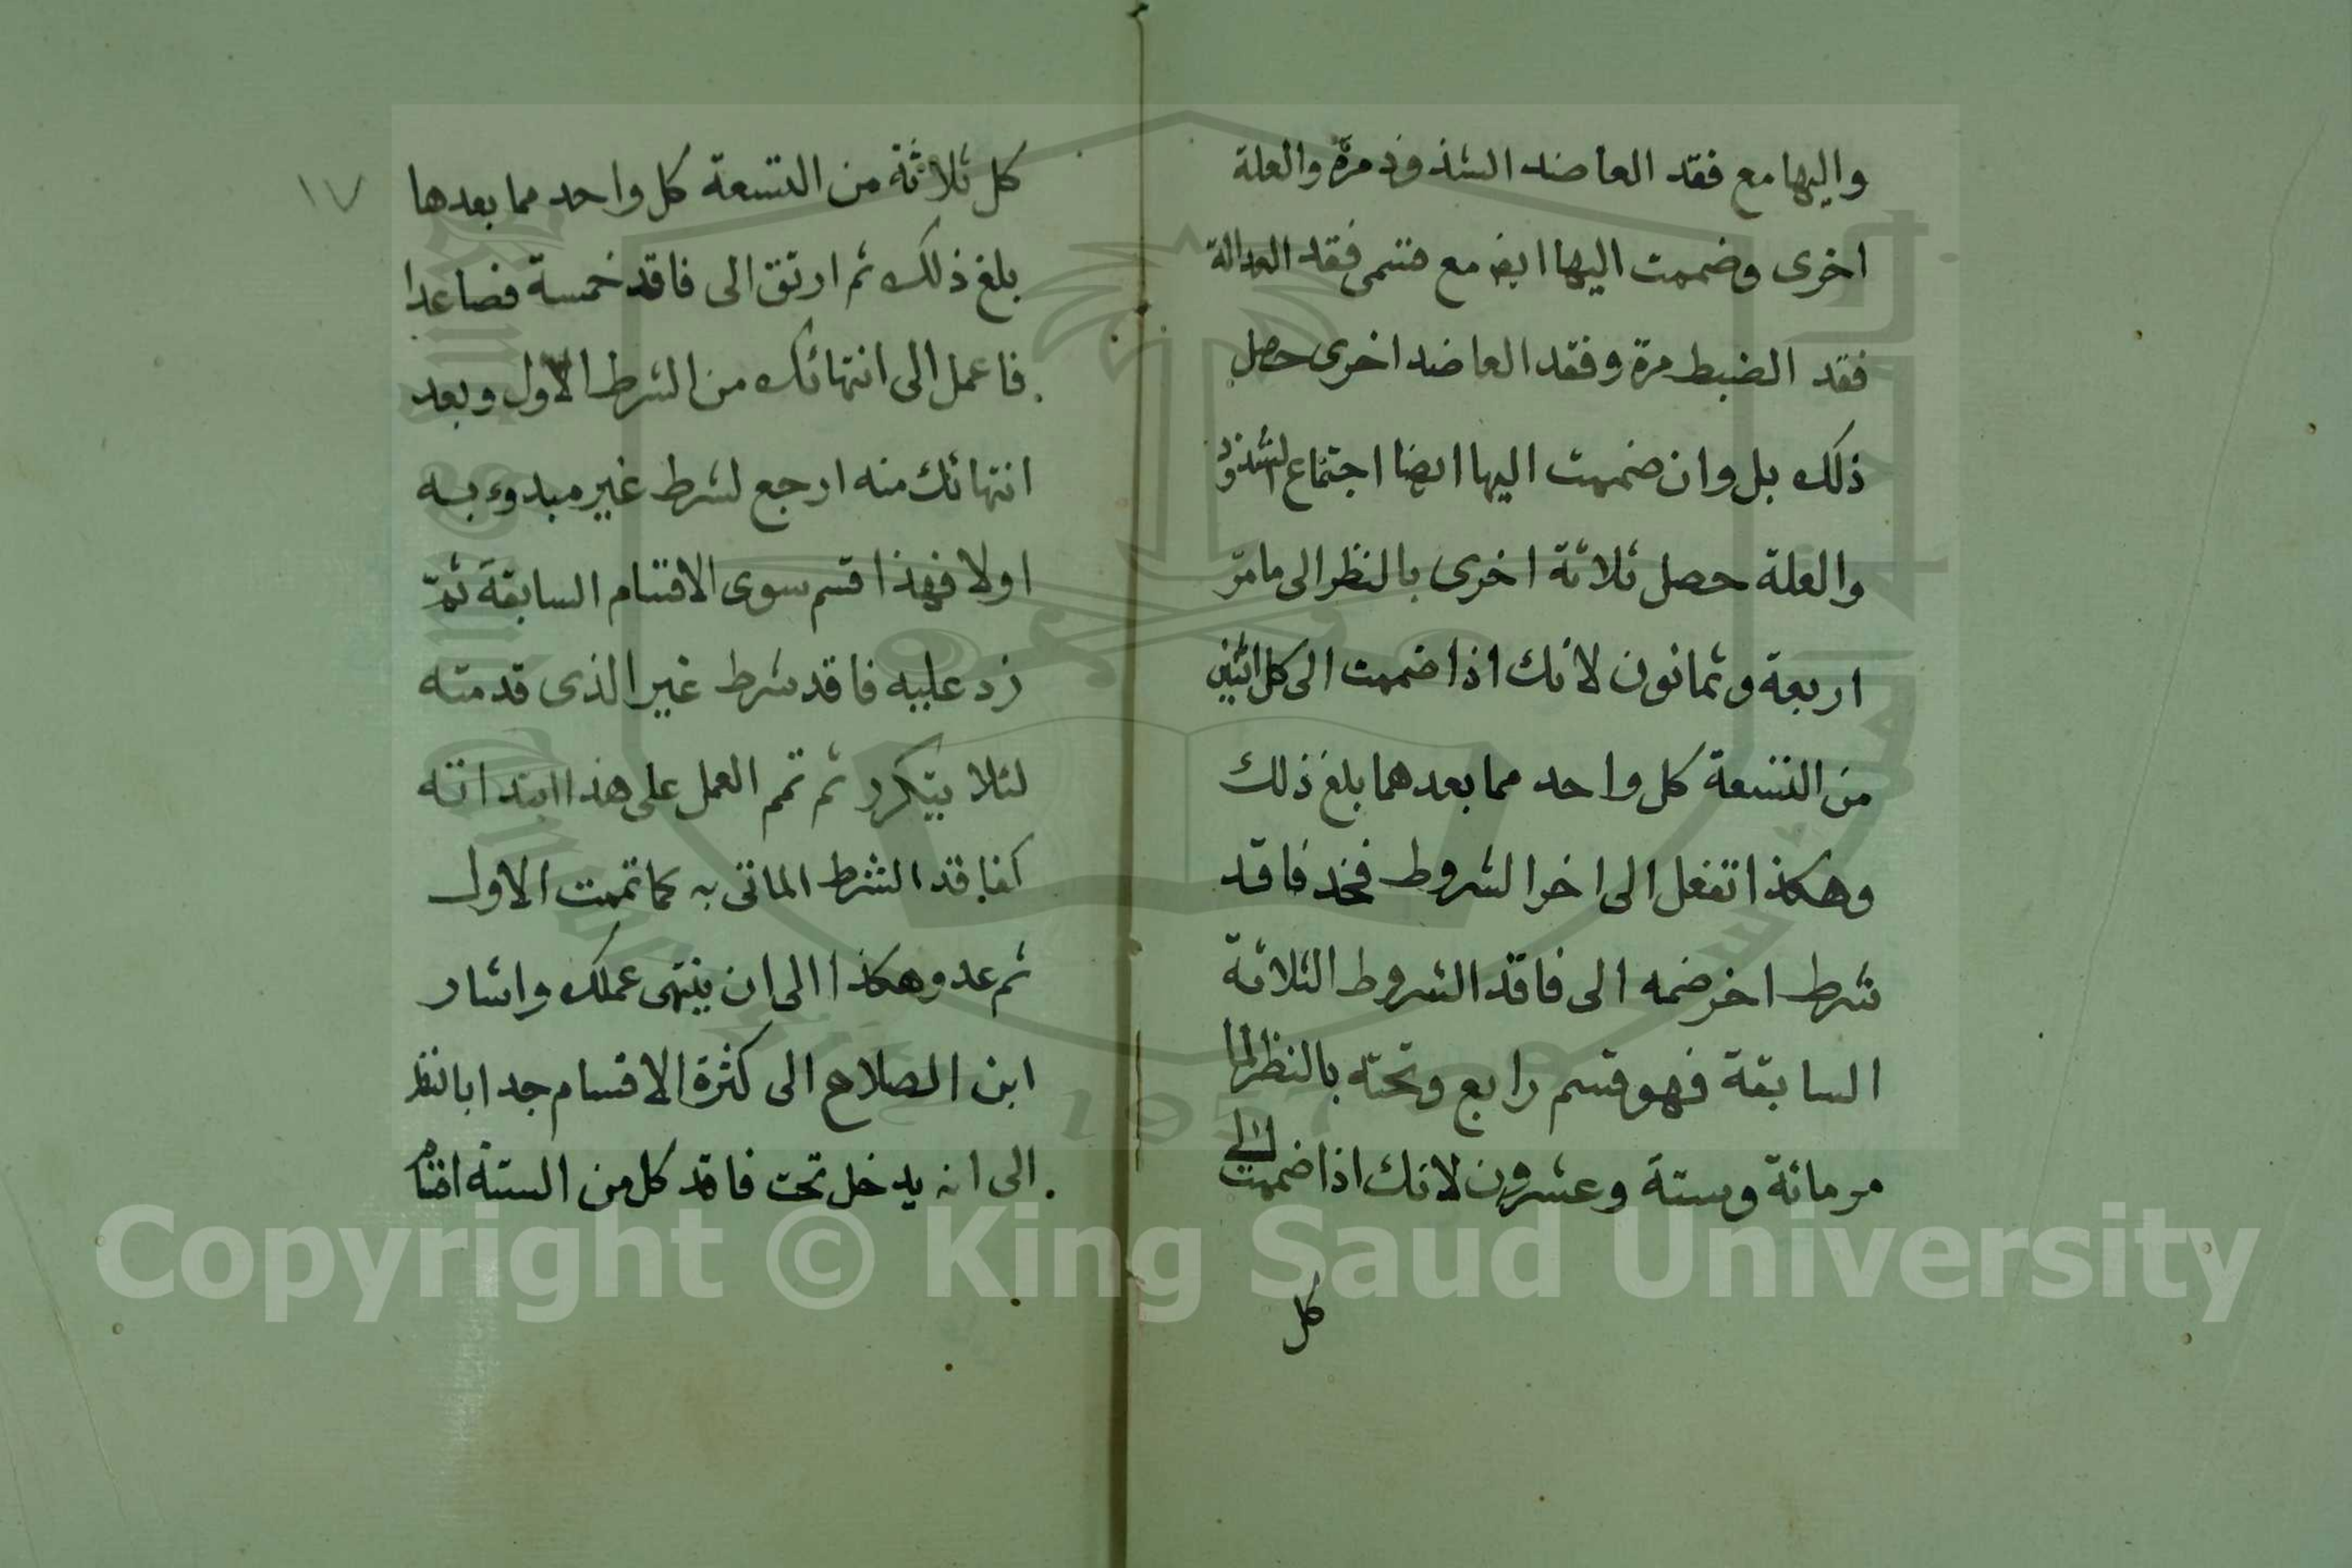 واليها مع فقد العاضد الشذوذ مرة والعلة
اخرى وضممت اليها ايضا مع قسمى فقد العدالة
فقد الضبط مرة وفقد العاضد اخرى حصل
ذلك بل وان ضممت اليها ايضا اجتماع الشذوذ
والعلة حصل ثلاثة اخرى بالنظر الى مامر
اربعة وثمانون لانك اذا ضممت الى كل اثنين
من التسعة كل واحد مما بعدهما بلغ ذلك
وهكذا تفعل الى اخر الشروط فخذ فاقد
شرط اخر ضمه الى فاقد الشروط الثلاثة
السابقة فهو قسم رابع وتحته بالنظر لما
مر مائة وستة وعشرون لانك اذا ضممت الى
كل
١٧
كل ثلاثة من التسعة كل واحد مما بعدها
بلغ ذلك ثم ارتق الى فاقد خمسة فصاعدا
فاعمل الى انتهائك من الشرط الاول وبعد
انتهائك منه ارجع لشرط غير مبدوء به
اولا فهذا قسم سوى الاقسام السابقة ثم
زد عليه فاقد شرط غير الذى قدمته
لئلا يتكرر ثم تمم العمل على هذا ابتداته
كفاقد الشرط الماتى به كما تممت الاول
ثم عد وهكذا الى ان ينتهى عملك واشار
ابن الصلاح الى كثرة الاقسام جدا بالنظر
الى انه يدخل تحت فاقد كل من الستة اقسام
Copyright © King Saud University
1957